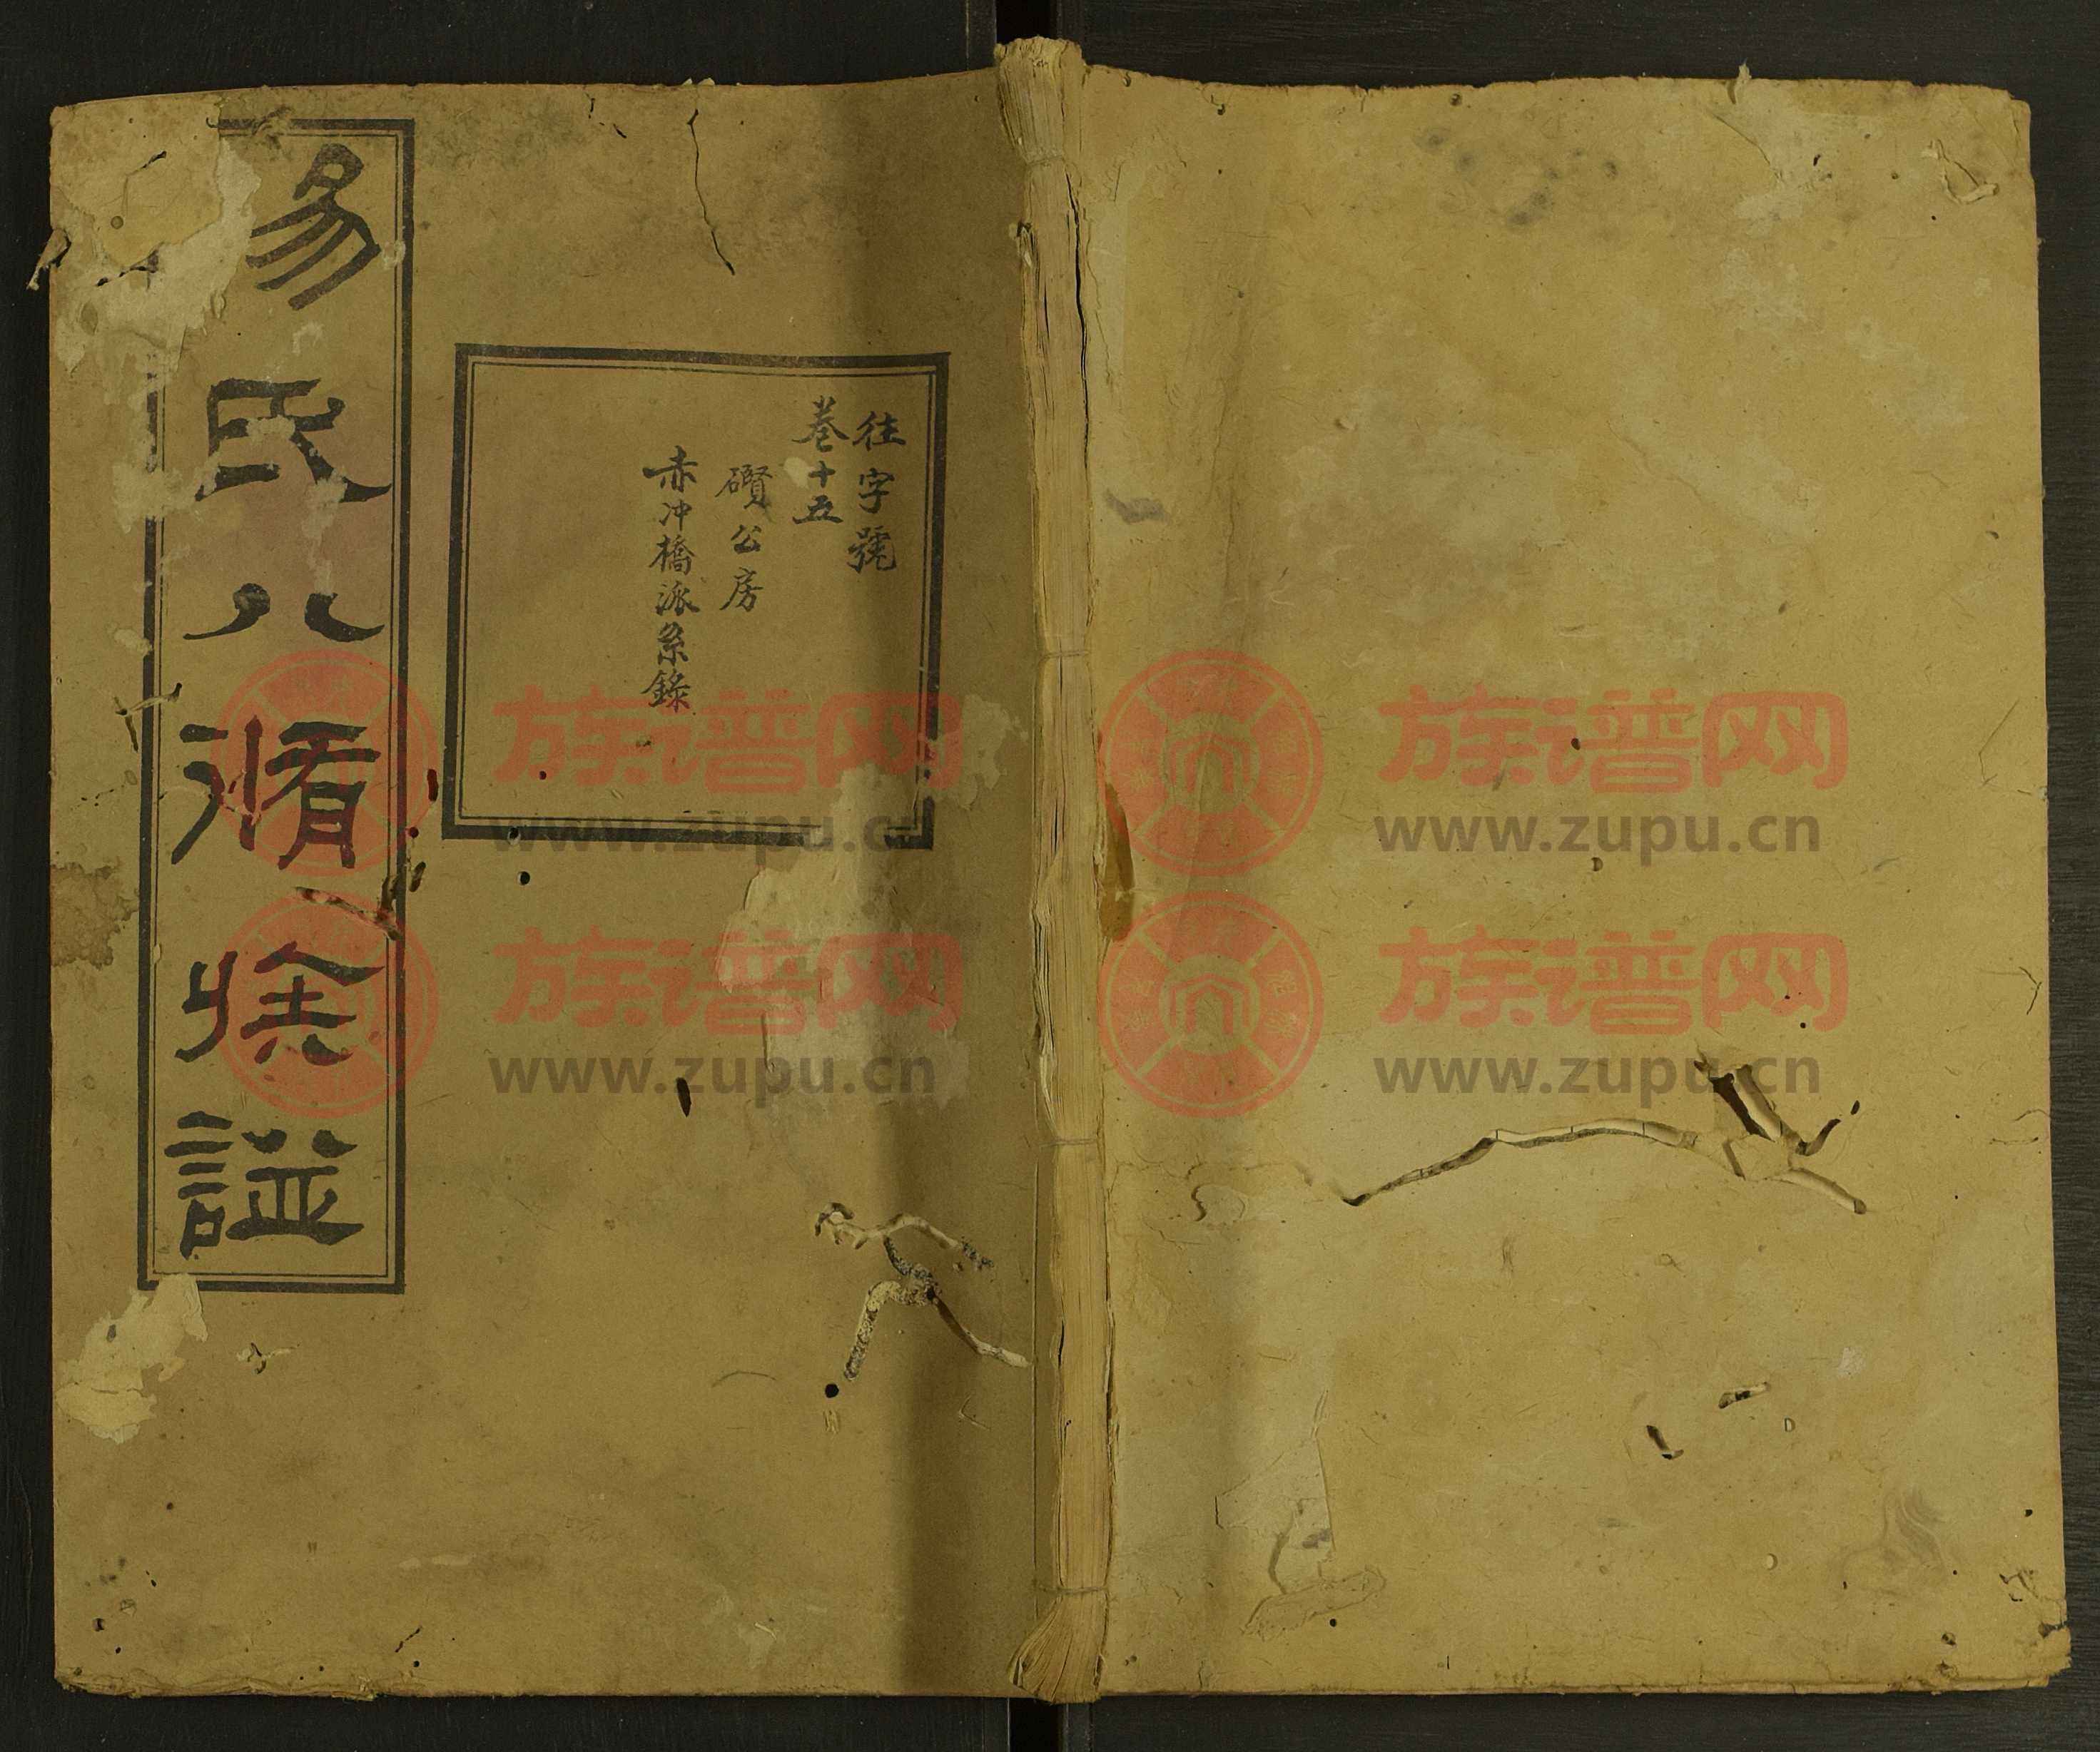 易氏八脩族譜
往字號
卷十五
礥公房
赤冲橋派系錄
族谱网
www.zupu.cn
族谱网
www.zupu.cn
族谱网
www.zupu.cn
族谱网
www.zupu.cn